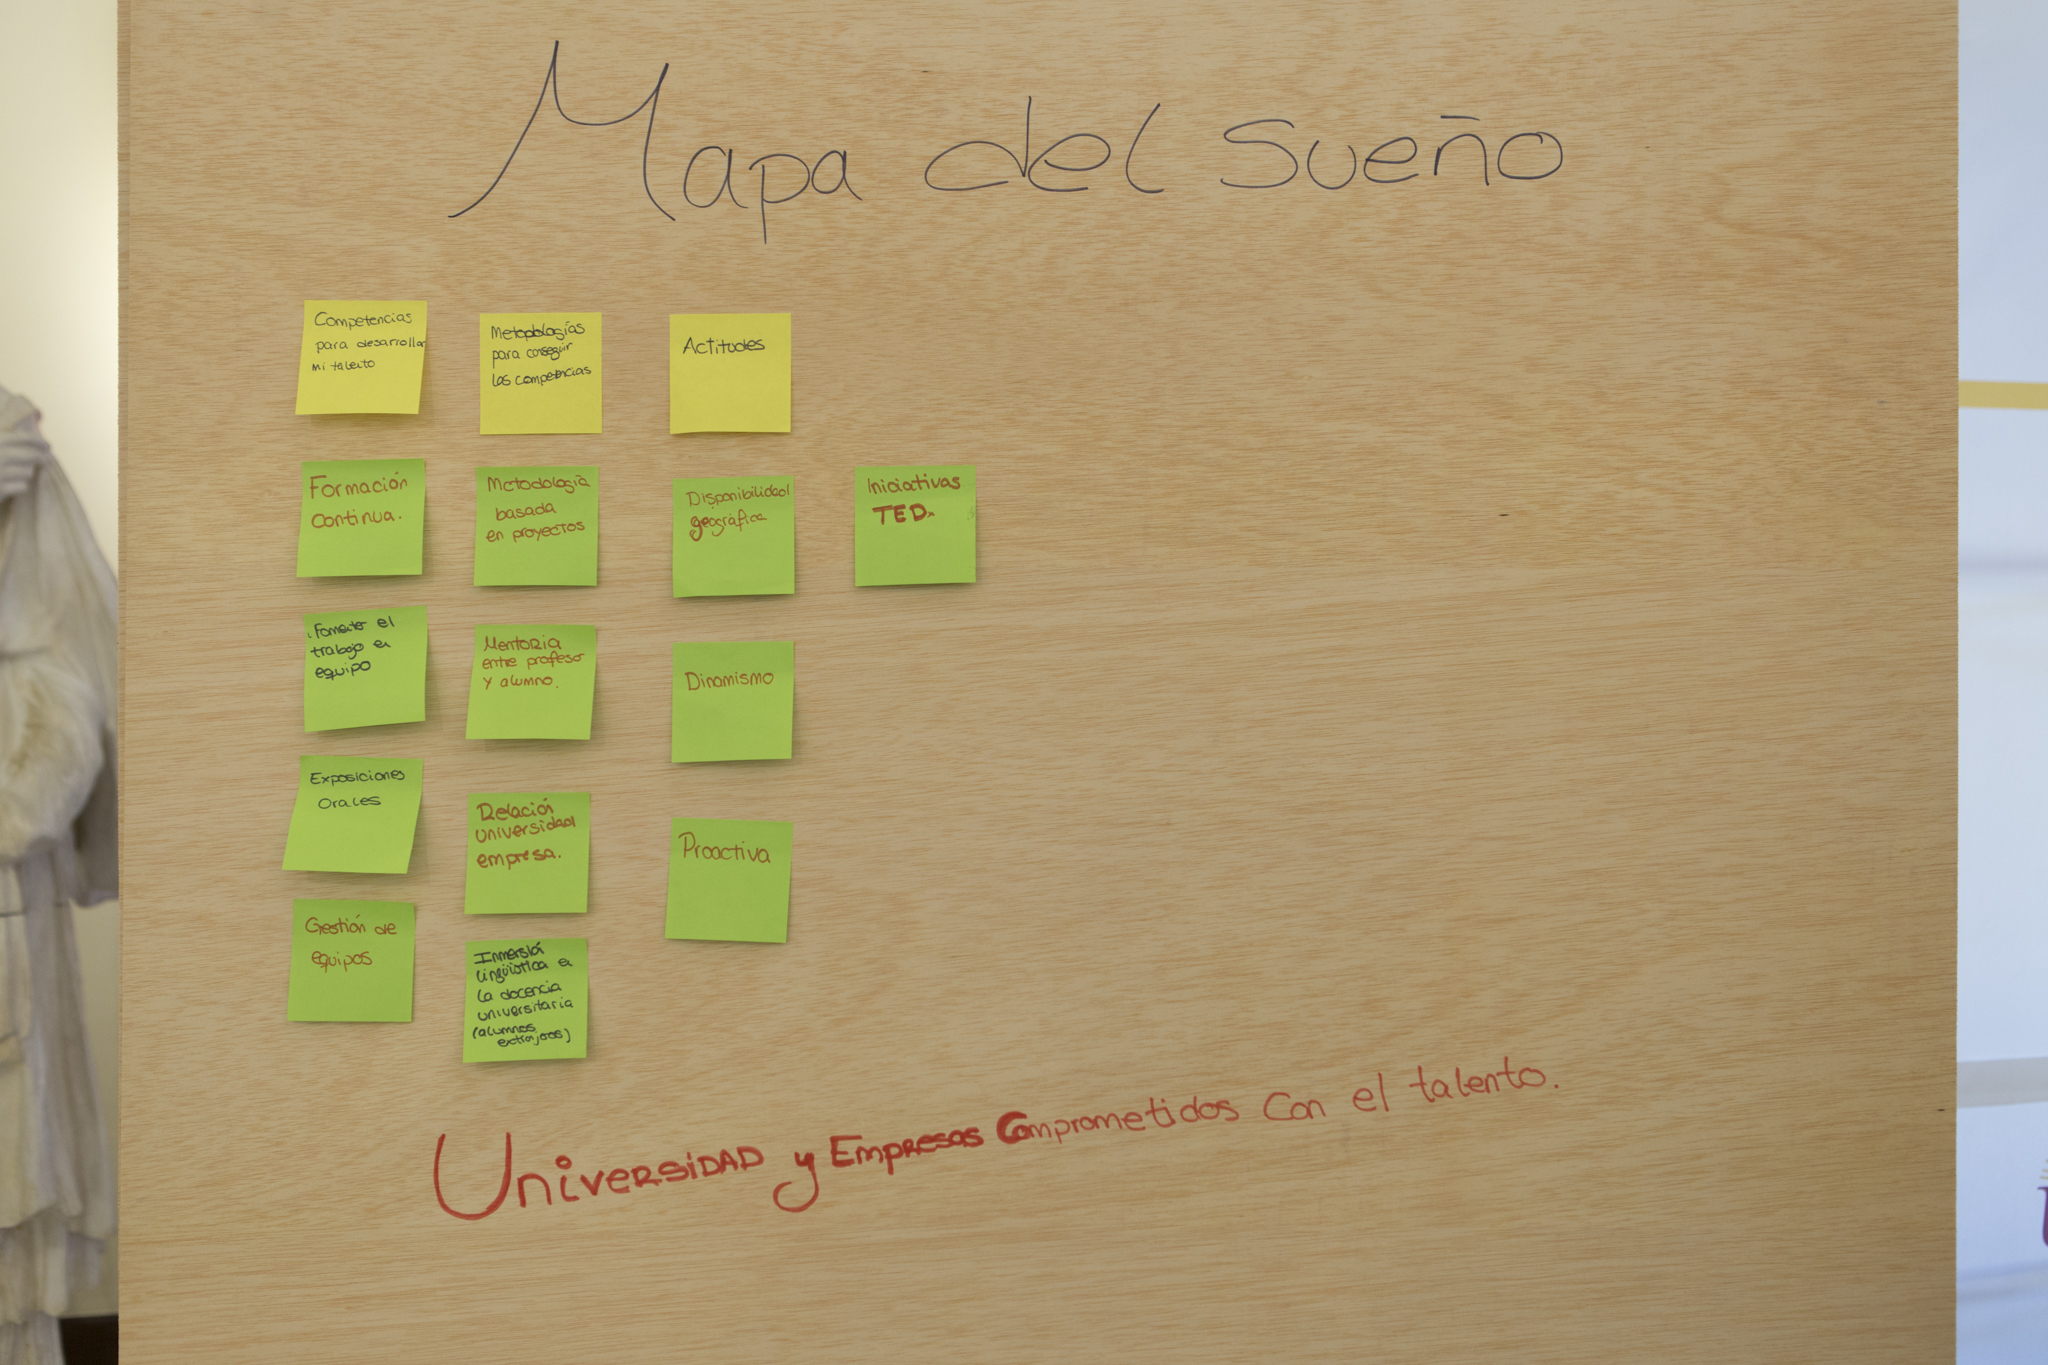 Mapa del sueño
Competencias
para desarrollar
mi talento
Metodologías
para conseguir
las competencias
Actitudes
Formación
continua.
Metodología
basada
en proyectos
Disponibilidad
geográfica
Iniciativas
TEDx
Fomentar el
trabajo en
equipo
Mentoria
entre profesor
y alumno.
Dinamismo
Exposiciones
orales
Relación
universidad
empresa.
Proactiva
Gestión de
equipos
Inmersión
lingüística en
la docencia
universitaria
(alumnos
extranjeros)
Universidad y Empresas Comprometidos con el talento.